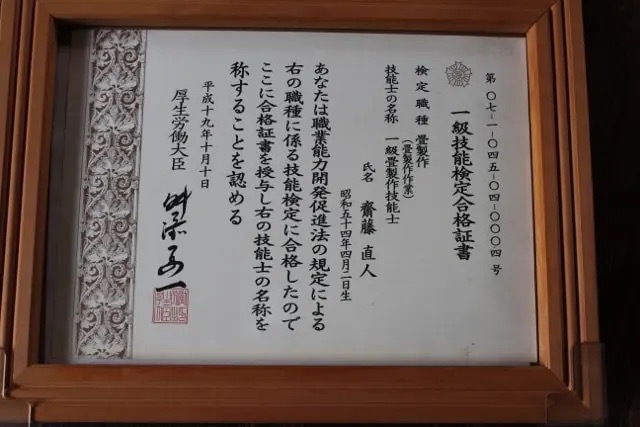 第〇七-一-〇四五-〇四-〇〇〇四号
一級技能検定合格証書
検定職種 畳製作
(畳製作作業)
技能士の名称 一級畳製作技能士
氏名 齋藤直人
昭和五十四年四月二日生
あなたは職業能力開発促進法の規定による
右の職種に係る技能検定に合格したので
ここに合格証書を授与し右の技能士の名称を
称することを認める
平成十九年十月十日
厚生労働大臣
舛添要一